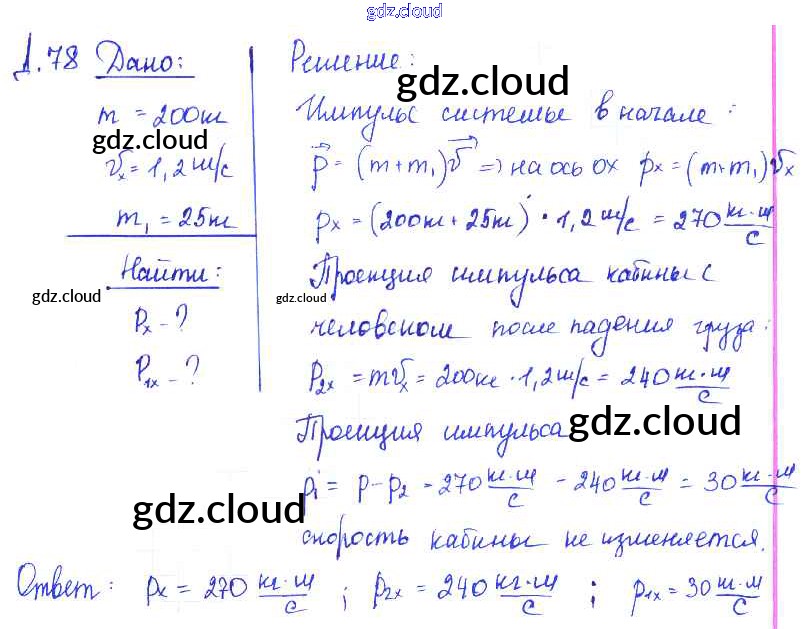 gdz.cloud
Д.78 Дано:
m = 200кг
gdz.cloud
vₓ = 1,2 м/с
m₁ = 25кг
Найти:
gdz.cloud
pₓ - ?
p₁ₓ - ?
Решение:
gdz.cloud
Импульс системы в начале:
p⃗ = (m+m₁)v⃗ => на ось ox pₓ = (m+m₁)vₓ
pₓ = (200кг + 25кг) · 1,2 м/с = 270 кг·м/с
Проекция импульса кабины с
gdz.cloud
человеком после падения груза:
p₂ₓ = mvₓ = 200кг · 1,2 м/с = 240 кг·м/с
Проекция импульса
gdz.cloud
p₁ = p - p₂ = 270 кг·м/с - 240 кг·м/с = 30 кг·м/с
gdz.cloud
скорость кабины не изменяется.
Ответ: pₓ = 270 кг·м/с ; p₂ₓ = 240 кг·м/с ; p₁ₓ = 30 кг·м/с